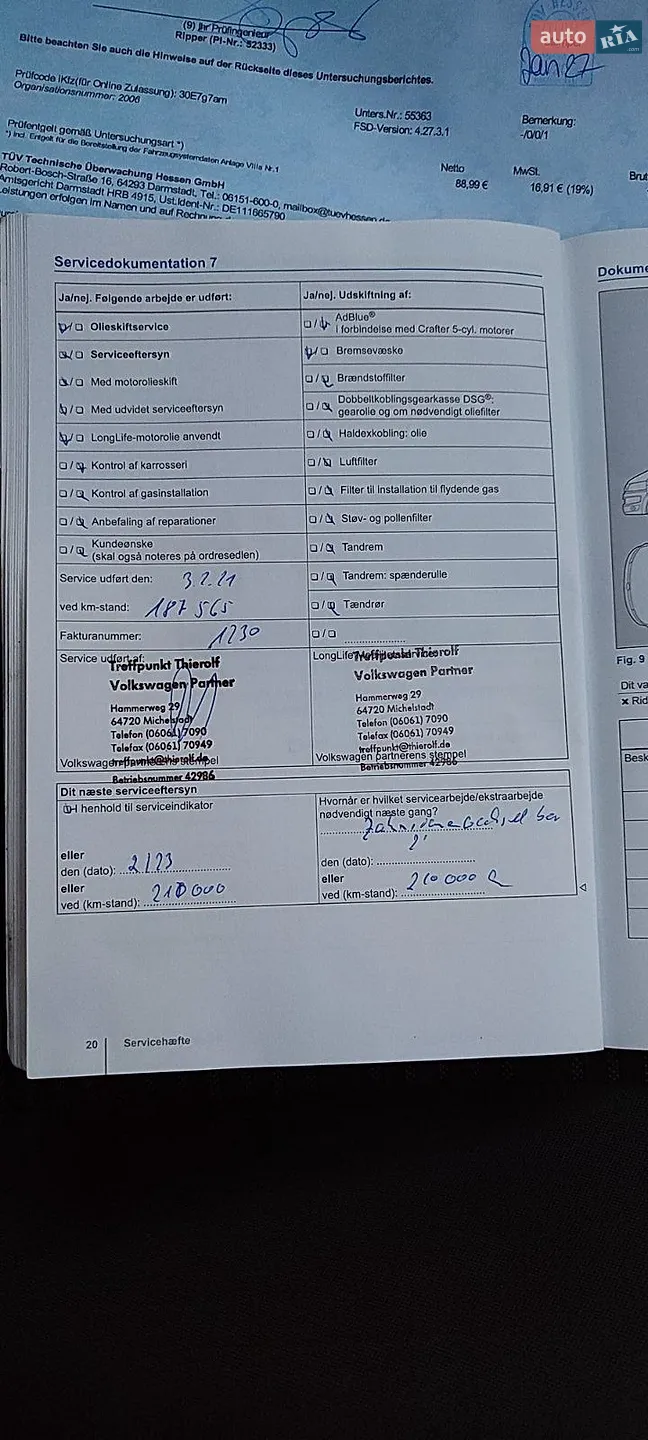 (9) Ihr Prüfingenieur
Ripper (PI-Nr.: 52333)
Bitte beachten Sie auch die Hinweise auf der Rückseite dieses Untersuchungsberichtes.
auto RIA .com
Jan 27
Prüfcode iKfz(für Online Zulassung): 30E7g7am
Organisationsnummer: 2006
Unters.Nr.: 55363
FSD-Version: 4.27.3.1
Bemerkung:
-/0/0/1
Prüfentgelt gemäß Untersuchungsart *)
*) incl. Entgelt für die Bereitstellung der Fahrzeugsystemdaten Anlage VIIIa Nr.1
Netto
MwSt.
88,99 €
16,91 € (19%)
TÜV Technische Überwachung Hessen GmbH
Robert-Bosch-Straße 16, 64293 Darmstadt, Tel.: 06151-600-0, mailbox@tuevhessen.de
Amtsgericht Darmstadt HRB 4915, Ust.Ident-Nr.: DE111665790
Leistungen erfolgen im Namen und auf
Servicedokumentation 7
Ja/nej. Følgende arbejde er udført:
Ja/nej. Udskiftning af:
Olieskiftservice
AdBlue®
i forbindelse med Crafter 5-cyl. motorer
Serviceeftersyn
Bremsevæske
Med motorolieskift
Brændstoffilter
Med udvidet serviceeftersyn
Dobbeltkoblingsgearkasse DSG®:
gearolie og om nødvendigt oliefilter
LongLife-motorolie anvendt
Haldexkobling: olie
Kontrol af karrosseri
Luftfilter
Kontrol af gasinstallation
Filter til installation til flydende gas
Anbefaling af reparationer
Støv- og pollenfilter
Kundeønske
(skal også noteres på ordresedlen)
Tandrem
Service udført den: 3.2.21
Tandrem: spænderulle
ved km-stand: 187 565
Tændrør
Fakturanummer: 1230
Service udført af:
Treffpunkt Thierolf
Volkswagen Partner
Hammerweg 29
64720 Michelstadt
Telefon (06061) 7090
Telefax (06061) 70949
treffpunkt@thierolf.de
Volkswagen partnerens stempel
Betriebsnummer 42986
Treffpunkt Thierolf
Volkswagen Partner
Hammerweg 29
64720 Michelstadt
Telefon (06061) 7090
Telefax (06061) 70949
treffpunkt@thierolf.de
Volkswagen partnerens stempel
Betriebsnummer 42986
Dit næste serviceeftersyn
I henhold til serviceindikator
Hvornår er hvilket servicearbejde/ekstraarbejde
nødvendigt næste gang?
eller
den (dato): 2/23
eller
ved (km-stand): 210000
den (dato):
eller
ved (km-stand): 210 000
20
Servicehæfte
Fig. 9
Dit va
× Rid
Besk